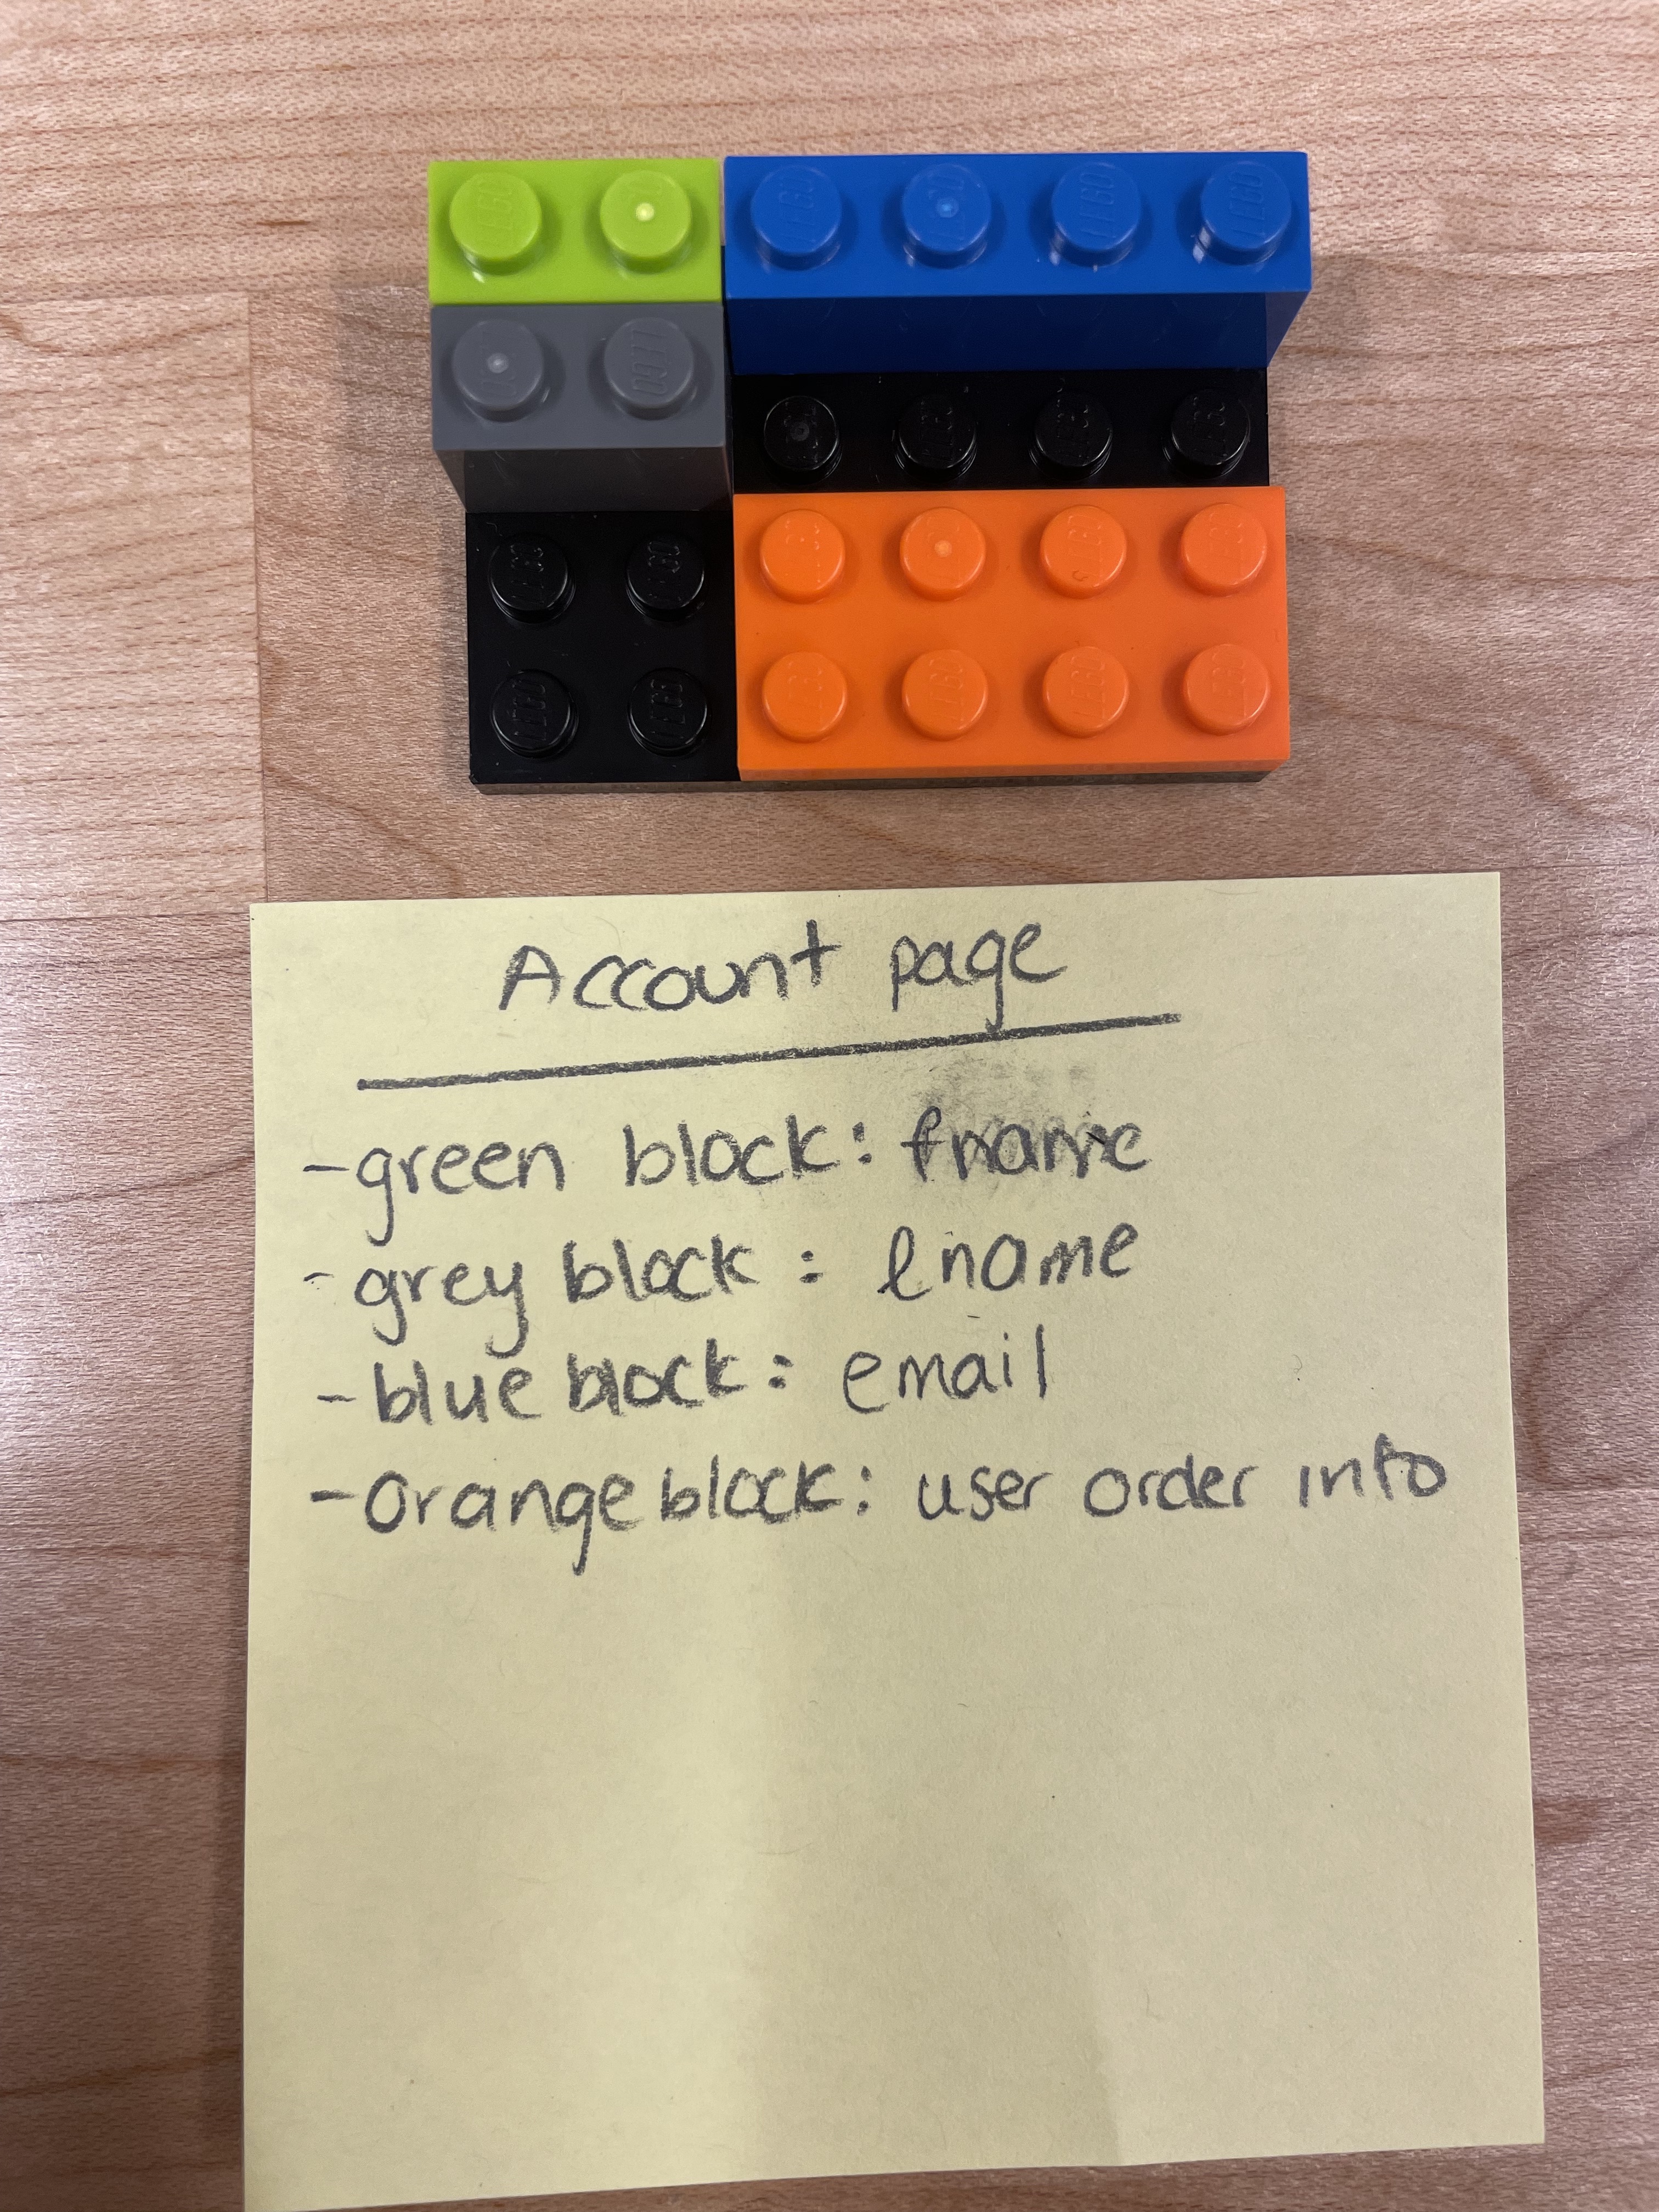 Account page
- green block: fname
- grey block: lname
- blue block: email
- Orange block: user order info